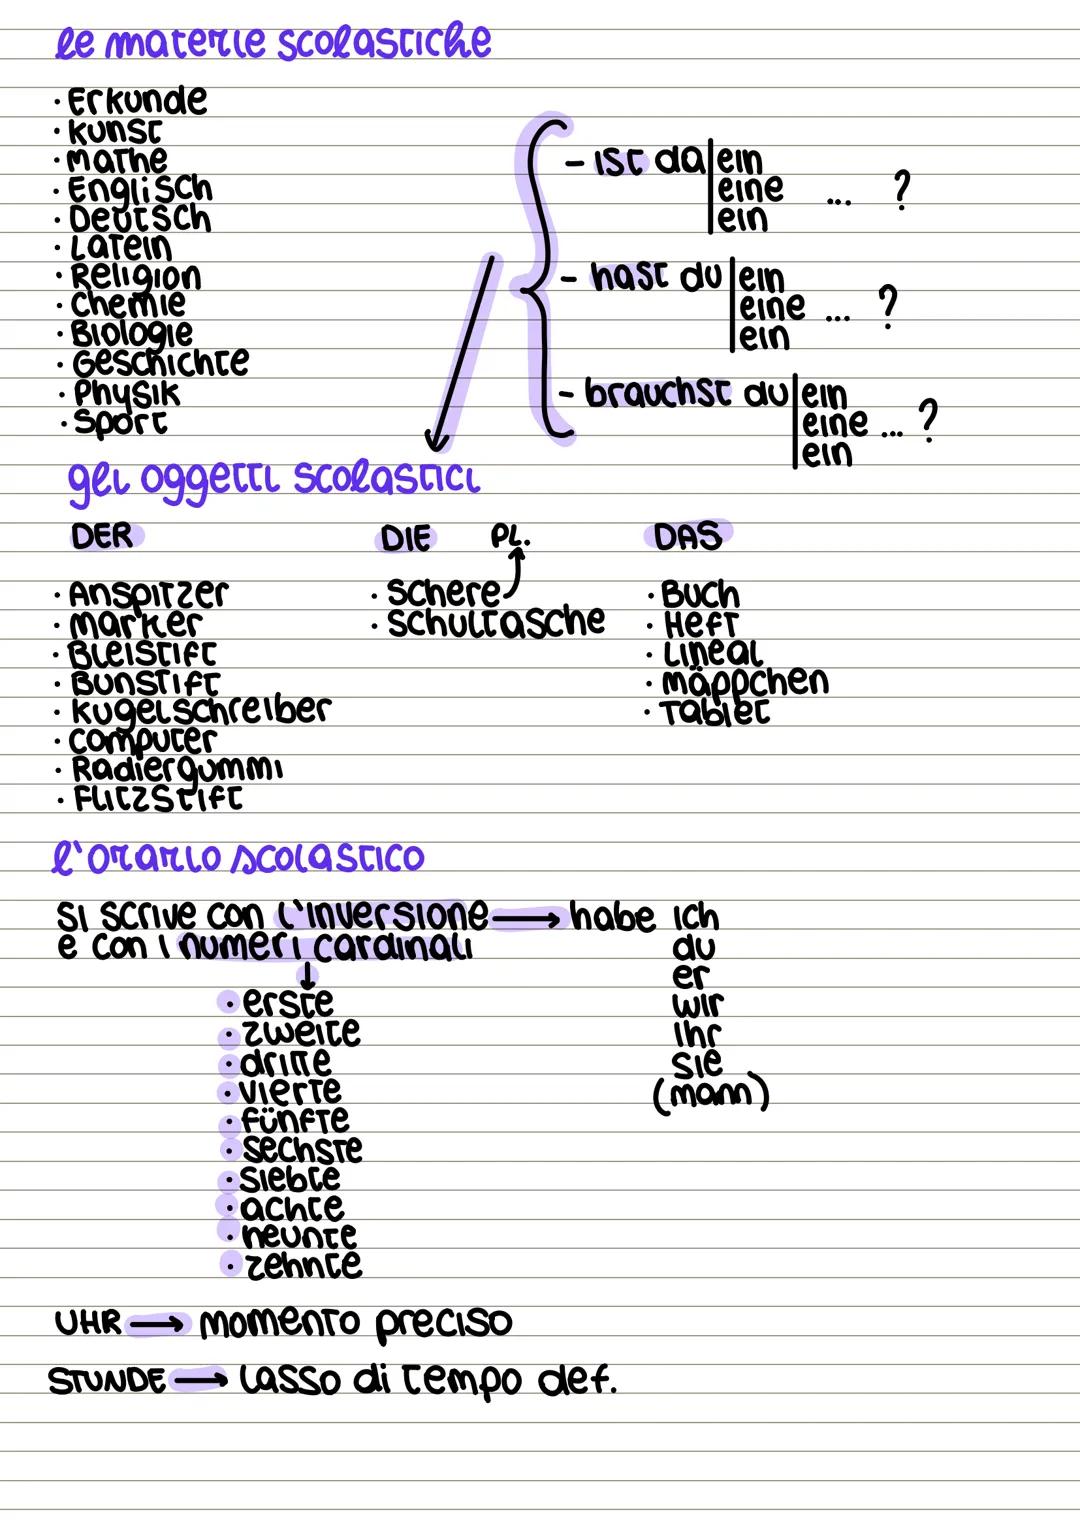 le materie scolastiche
· Erkunde
· Kunst
· Mathe
· Englisch
· Deutsch
· Latein
· Religion
· Chemie
· Biologie
· Geschichte
· Physik
· Sport
- ist da ein
eine ... ?
ein
- hast du ein
eine ... ?
ein
- brauchst du ein
eine ... ?
ein
gli oggetti scolastici
DER
· Anspitzer
· Marker
· Bleistift
· Bunstift
· Kugelschreiber
· Computer
· Radiergummi
· Flitzstift
DIE PL.
· Schere
· Schultasche
DAS
· Buch
· Heft
· Lineal
· Mäppchen
· Tablet
l'orario scolastico
si scrive con l'inversione → habe ich
e con i numeri cardinali
du
er
wir
ihr
sie
(mann)
· erste
· zweite
· dritte
· vierte
· fünfte
· sechste
· siebte
· achte
· neunte
· zehnte
UHR → momento preciso
STUNDE → lasso di tempo def.